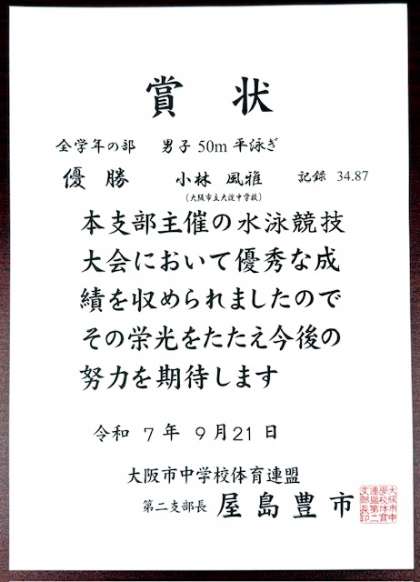 賞状
全学年の部 男子 50m 平泳ぎ
優勝 小林 風雅 記録 34.87
(大阪市立大淀中学校)
本支部主催の水泳競技
大会において優秀な成
績を収められましたので
その栄光をたたえ今後の
努力を期待します
令和 7 年 9 月 21 日
大阪市中学校体育連盟
第二支部長 屋島豊市